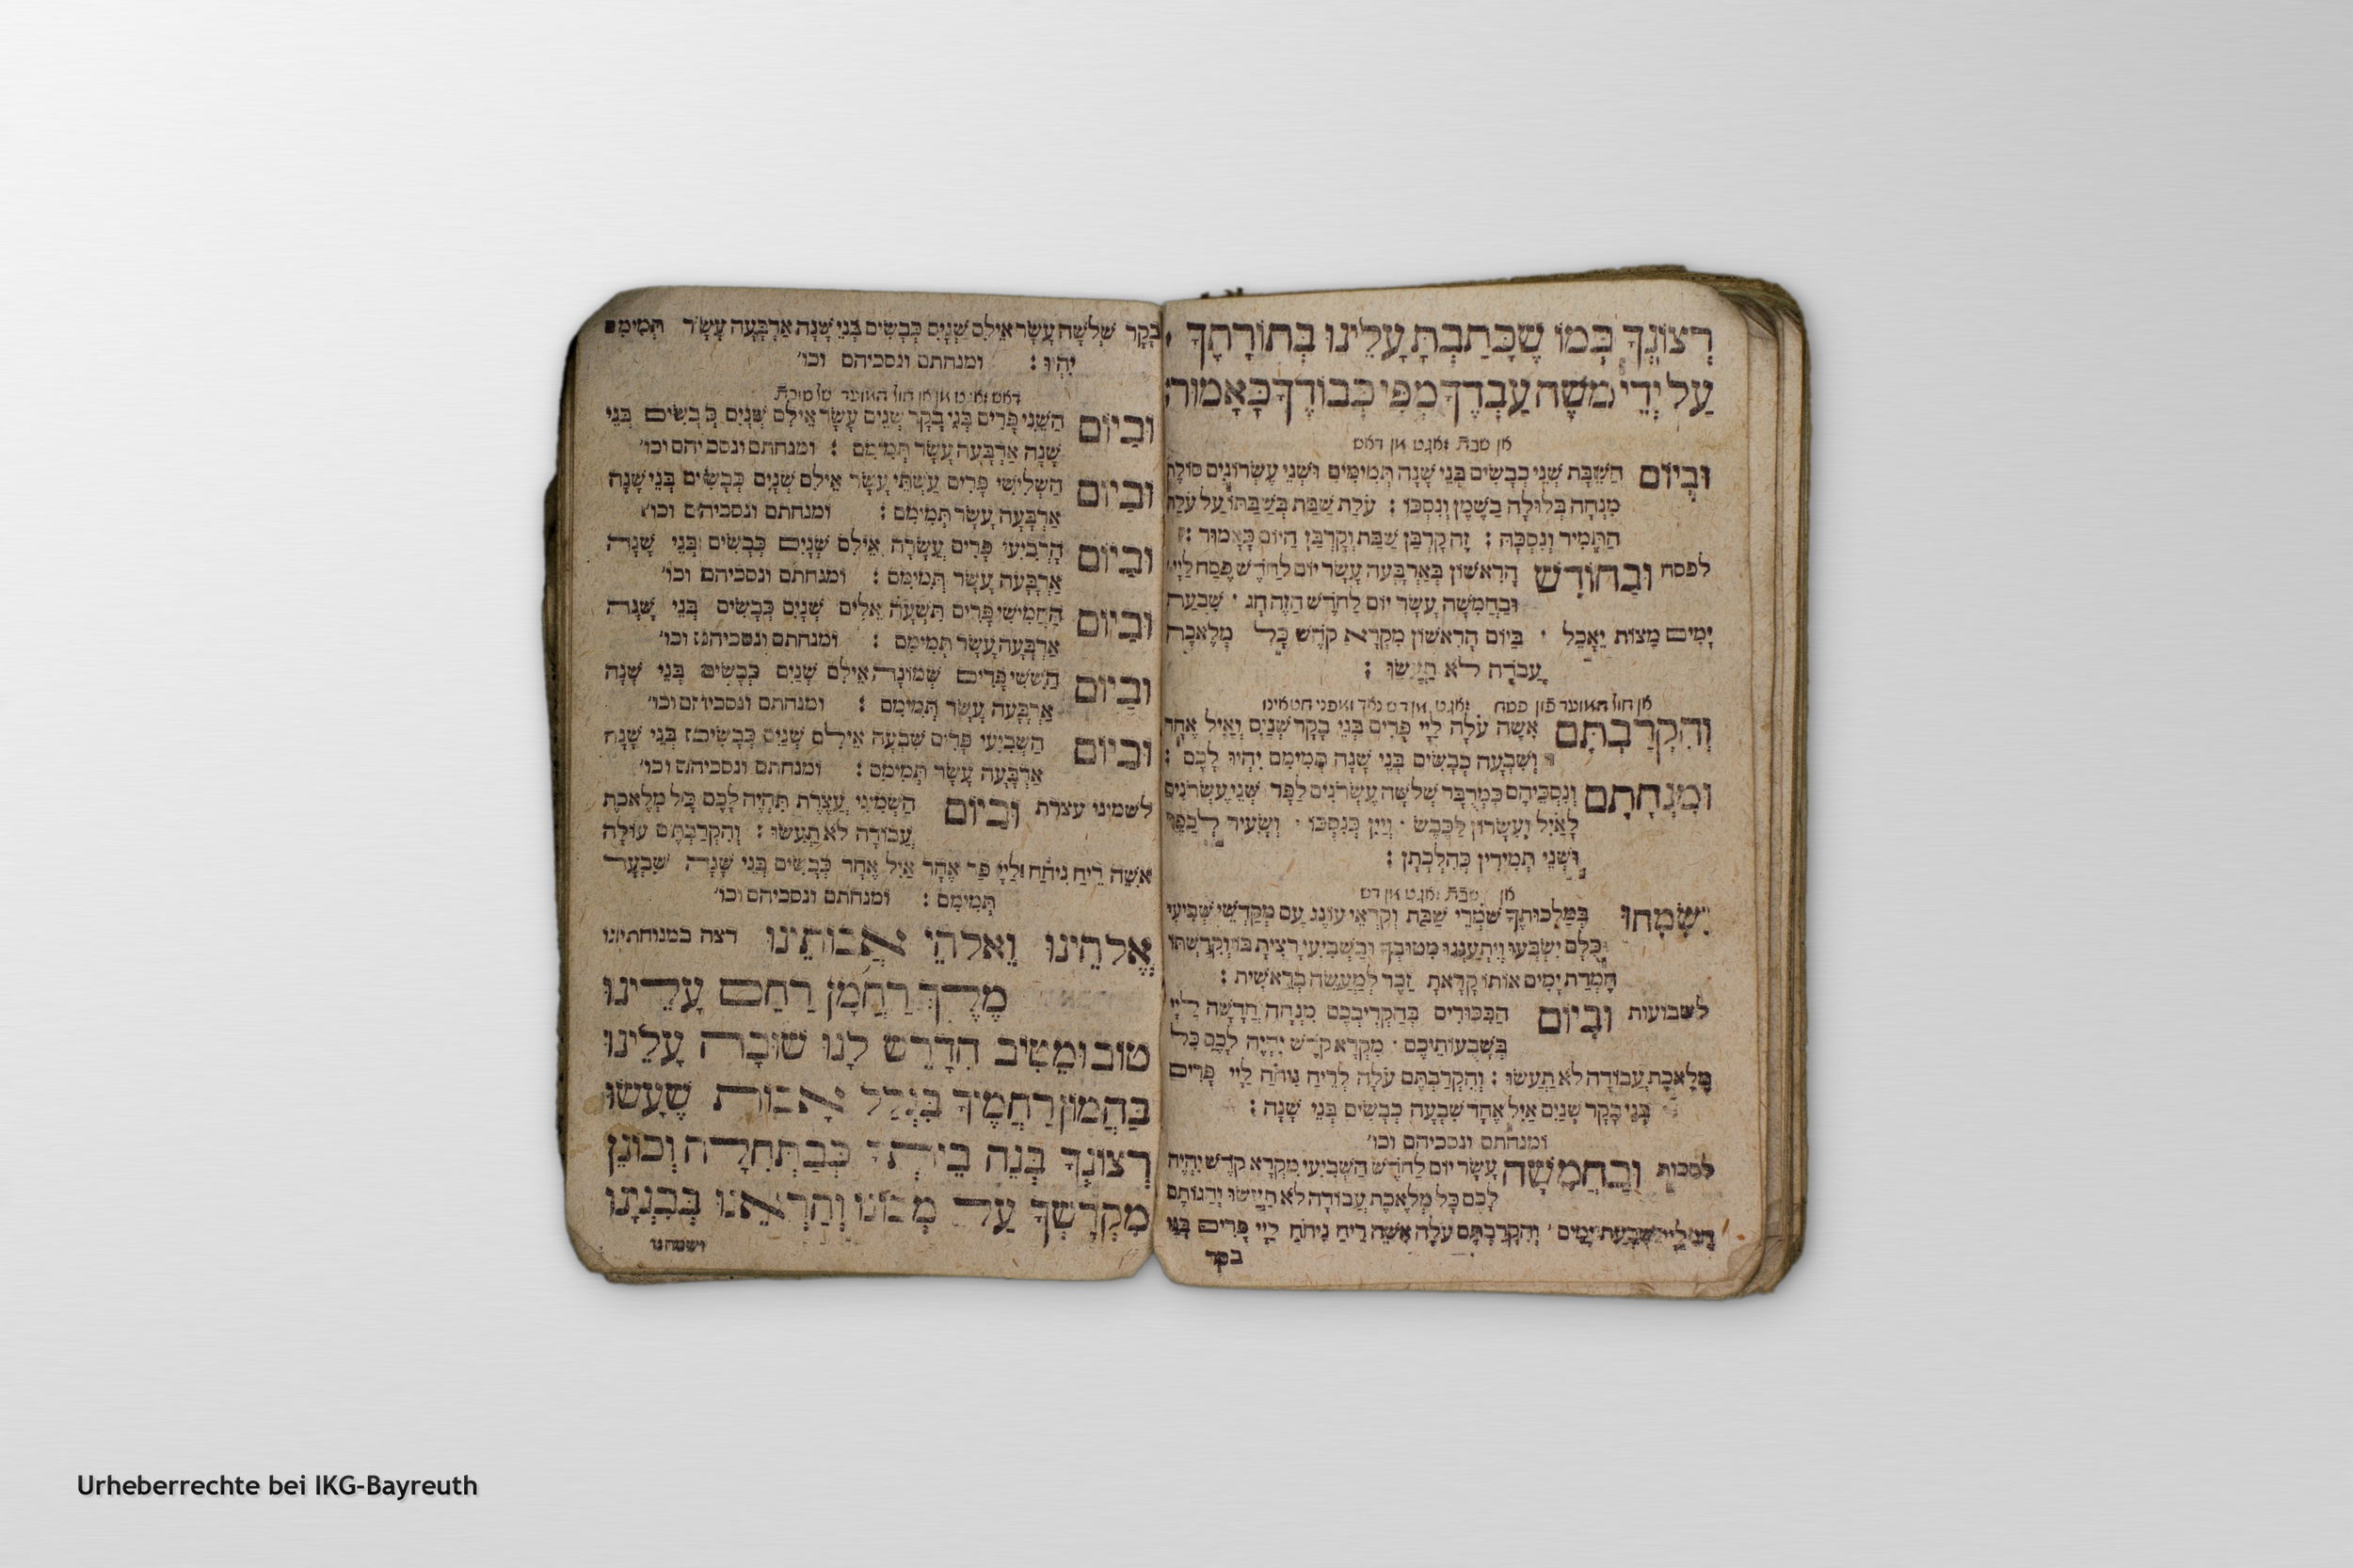 רְצוֹנְךָ כְּמוֹ שֶׁכָּתַבְתָּ עָלֵינוּ בְּתוֹרָתֶךָ
עַל יְדֵי מֹשֶׁה עַבְדֶּךָ מִפִּי כְּבוֹדֶךָ כָּאָמוּר׃
אן שבת זאגט אן דאש
וּבְיוֹם הַשַּׁבָּת שְׁנֵי כְבָשִׂים בְּנֵי שָׁנָה תְּמִימִים וּשְׁנֵי עֶשְׂרוֹנִים סוֹלֶת
מִנְחָה בְּלוּלָה בַשֶּׁמֶן וְנִסְכּוֹ : עֹלַת שַׁבַּת בְּשַׁבַּתּוֹ עַל עֹלַת
הַתָּמִיד וְנִסְכָּהּ : זֶה קָרְבַּן שַׁבַּת וְקָרְבַּן הַיּוֹם כָּאָמוּר :
לפסח וּבַחוֹדֶשׁ הָרִאשׁוֹן בְּאַרְבָּעָה עָשָׂר יוֹם לַחֹדֶשׁ פֶּסַח לַיְיָ
וּבַחֲמִשָּׁה עָשָׂר יוֹם לַחֹדֶשׁ הַזֶּה חָג · שִׁבְעַת
יָמִים מַצּוֹת יֵאָכֵל · בַּיּוֹם הָרִאשׁוֹן מִקְרָא קֹדֶשׁ כָּל מְלֶאכֶת
עֲבֹדָה לֹא תַעֲשׂוּ :
אן חול המועד פון פסח זאגט מן דש נאך ומפני חטאינו
וְהִקְרַבְתֶּם אִשֶּׁה עֹלָה לַיְיָ פָּרִים בְּנֵי בָקָר שְׁנַיִם וְאַיִל אֶחָד
וְשִׁבְעָה כְבָשִׂים בְּנֵי שָׁנָה תְּמִימִם יִהְיוּ לָכֶם :
וּמִנְחָתָם וְנִסְכֵּיהֶם כִּמְדֻבָּר שְׁלֹשָׁה עֶשְׂרֹנִים לַפָּר שְׁנֵי עֶשְׂרֹנִים
לָאַיִל וְעִשָּׂרוֹן לַכֶּבֶשׂ · וְיַיִן כְּנִסְכּוֹ · וְשָׂעִיר לְכַפֵּר
וּשְׁנֵי תְמִידִין כְּהִלְכָתָן :
אן שבת זאגט אן דש
יִשְׂמְחוּ בְּמַלְכוּתֶךָ שֹׁמְרֵי שַׁבָּת וְקֹרְאֵי עוֹנֶג עַם מְקַדְּשֵׁי שְׁבִיעִי
כֻּלָּם יִשְׂבְּעוּ וְיִתְעַנְּגוּ מִטּוּבֶךָ וּבַשְּׁבִיעִי רָצִיתָ בּוֹ וְקִדַּשְׁתּוֹ
חֶמְדַּת יָמִים אוֹתוֹ קָרָאתָ זֵכֶר לְמַעֲשֵׂה בְרֵאשִׁית :
לשבועות וּבְיוֹם הַבִּכּוּרִים בְּהַקְרִיבְכֶם מִנְחָה חֲדָשָׁה לַיְיָ
בְּשָׁבֻעוֹתֵיכֶם · מִקְרָא קֹדֶשׁ יִהְיֶה לָכֶם כָּל
מְלֶאכֶת עֲבוֹדָה לֹא תַעֲשׂוּ : וְהִקְרַבְתֶּם עֹלָה לְרֵיחַ נִיחֹחַ לַיְיָ פָּרִים
בְּנֵי בָקָר שְׁנַיִם אַיִל אֶחָד שִׁבְעָה כְבָשִׂים בְּנֵי שָׁנָה :
ומנחתם ונסכיהם וכו׳
לסכות וּבַחֲמִשָּׁה עָשָׂר יוֹם לַחֹדֶשׁ הַשְּׁבִיעִי מִקְרָא קֹדֶשׁ יִהְיֶה
לָכֶם כָּל מְלֶאכֶת עֲבוֹדָה לֹא תַעֲשׂוּ וְחַגּוֹתֶם
חַג לַיְיָ שִׁבְעַת יָמִים · וְהִקְרַבְתֶּם עֹלָה אִשֵּׁה רֵיחַ נִיחֹחַ לַיְיָ פָּרִים בְּנֵי
בקר
בָקָר שְׁלֹשָׁה עָשָׂר אֵילִם שְׁנַיִם כְּבָשִׂים בְּנֵי שָׁנָה אַרְבָּעָה עָשָׂר תְּמִימִם
יִהְיוּ : ומנחתם ונסכיהם וכו׳
דאש זאגט מן אן חול המועד של סוכות
וּבַיּוֹם הַשֵּׁנִי פָּרִים בְּנֵי בָקָר שְׁנֵים עָשָׂר אֵילִם שְׁנַיִם כְּבָשִׂים בְּנֵי
שָׁנָה אַרְבָּעָה עָשָׂר תְּמִימִם : ומנחתם ונסכיהם וכו׳
וּבַיּוֹם הַשְּׁלִישִׁי פָּרִים עַשְׁתֵּי עָשָׂר אֵילִם שְׁנָיִם כְּבָשִׂים בְּנֵי שָׁנָה
אַרְבָּעָה עָשָׂר תְּמִימִם : ומנחתם ונסכיהם וכו׳
וּבַיּוֹם הָרְבִיעִי פָּרִים עֲשָׂרָה אֵילִם שְׁנָיִם כְּבָשִׂים בְּנֵי שָׁנָה
אַרְבָּעָה עָשָׂר תְּמִימִם : ומנחתם ונסכיהם וכו׳
וּבַיּוֹם הַחֲמִישִׁי פָּרִים תִּשְׁעָה אֵלִים שְׁנָיִם כְּבָשִׂים בְּנֵי שָׁנָה
אַרְבָּעָה עָשָׂר תְּמִימִם : ומנחתם ונסכיהם וכו׳
וּבַיּוֹם הַשִּׁשִּׁי פָּרִים שְׁמוֹנָה אֵילִם שְׁנַיִם כְּבָשִׂים בְּנֵי שָׁנָה
אַרְבָּעָה עָשָׂר תְּמִימִם : ומנחתם ונסכיהם וכו׳
וּבַיּוֹם הַשְּׁבִיעִי פָּרִים שִׁבְעָה אֵילִם שְׁנַיִם כְּבָשִׂים בְּנֵי שָׁנָה
אַרְבָּעָה עָשָׂר תְּמִימִם : ומנחתם ונסכיהם וכו׳
לשמיני עצרת וּבַיּוֹם הַשְּׁמִינִי עֲצֶרֶת תִּהְיֶה לָכֶם כָּל מְלֶאכֶת
עֲבוֹדָה לֹא תַעֲשׂוּ : וְהִקְרַבְתֶּם עוֹלָה
אִשֵּׁה רֵיחַ נִיחֹחַ לַיְיָ פַּר אֶחָד אַיִל אֶחָד כְּבָשִׂים בְּנֵי שָׁנָה שִׁבְעָה
תְּמִימִם : ומנחתם ונסכיהם וכו׳
אֱלֹהֵינוּ וֵאלֹהֵי אֲבוֹתֵינוּ רצה במנוחתינו
מֶלֶךְ רַחֲמָן רַחֵם עָלֵינוּ
טוֹב וּמֵטִיב הִדָּרֵשׁ לָנוּ שׁוּבָה עָלֵינוּ
בַּהֲמוֹן רַחֲמֶיךָ בִּגְלַל אָבוֹת שֶׁעָשׂוּ
רְצוֹנֶךָ בְּנֵה בֵיתְךָ כְּבַתְּחִלָּה וְכוֹנֵן
מִקְדָּשְׁךָ עַל מְכוֹנוֹ וְהַרְאֵינוּ בְּבִנְיָנוֹ
ושמחנו
Urheberrechte bei IKG-Bayreuth